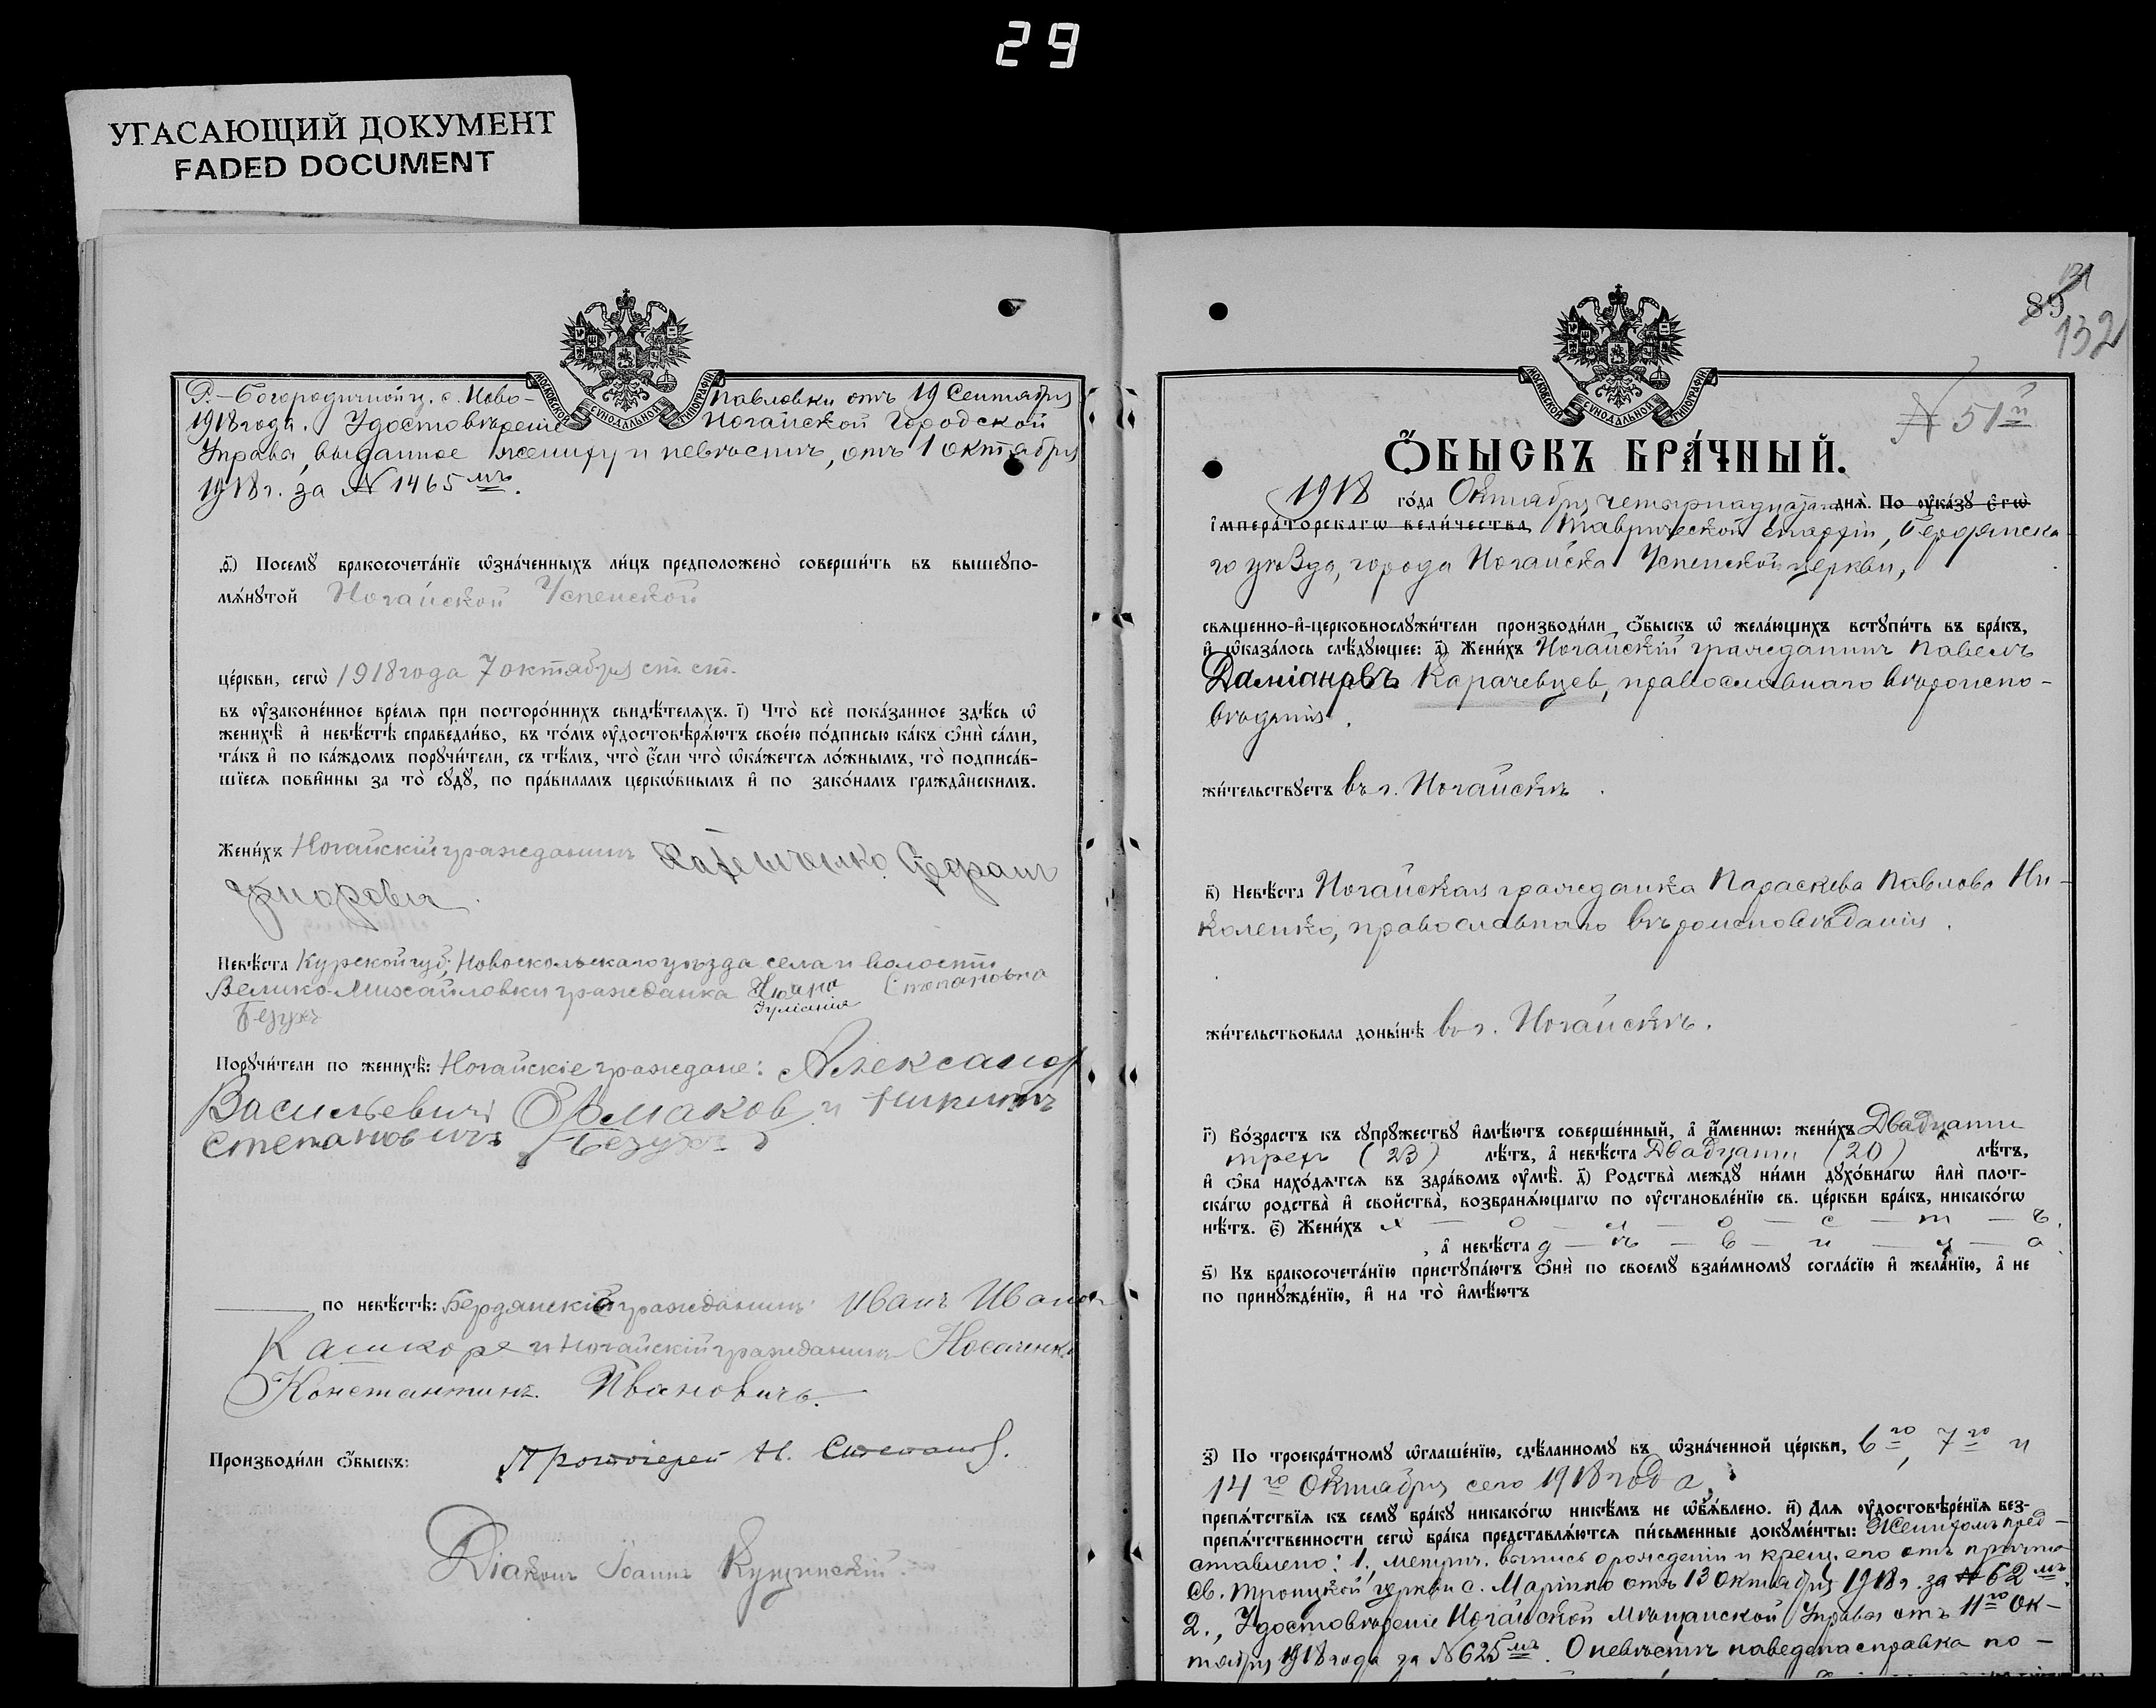 29
УГАСАЮЩИЙ ДОКУМЕНТ
FADED DOCUMENT
МОСКОВСКОЙ СѴНОДАЛЬНОЙ ТИПОГРАФІИ
Р.-Богородичной ц. с. Ново-Павловки отъ 19 Сентября
1918 года. Удостовѣреніе Ногайской Городской
Управы, выданное жениху и невѣстѣ, отъ 1 октября
1918 г. за № 1465мъ.
ѳ҃) Посемꙋ бракосочета́нїе ѡ҆зна́ченныхъ ли́цъ предположено̀ соверши́ть въ вышеꙋпо-
мѧ́нꙋтой Ногайской Успенской
це́ркви, сегѡ̀ 1918 года 7 октября ст. ст.
въ ᲂу҆законе́нное вре́мѧ при посторо́ннихъ свидѣ́телѧхъ. і҃) Что̀ всѐ пока́занное здѣ́сь ѡ҆
женихѣ̀ и҆ невѣ́стѣ справедли́во, въ то́мъ ᲂу҆достовѣрѧ́ютъ свое́ю по́дписью ка́къ ѻ҆нѝ са́ми,
та́къ и҆ по ка́ждомъ порꙋчи́тели, съ тѣ́мъ, что̀ є҆́сли что̀ ѡ҆ка́жетсѧ ло́жнымъ, то̀ подписа́в-
шїесѧ пови́нны за то̀ сꙋдꙋ̀, по пра́виламъ церкѡ́внымъ и҆ по зако́намъ гражда́нскимъ.
Жени́хъ Ногайскій гражданинъ
Невѣ́ста Курской губ., Новоскольскаго уѣзда села и волости
Велико-Михайловки гражданка Степановна
Безухъ
Порꙋчи́тели по женихѣ̀: Ногайскіе граждане: Александр
Васильевичъ Ермаков и Никита
Степановичъ Безухъ
по невѣ́стѣ: Бердянскій гражданинъ Иванъ Иванов
Кашкоре и Ногайскій гражданинъ Носаченко
Константинъ Ивановичъ.
Производи́ли ѻ҆́быскъ: Протоіерей Н. Степанов.
Діаконъ Іоаннъ Кущинскій.
89
131
132
№ 51й
МОСКОВСКОЙ СѴНОДАЛЬНОЙ ТИПОГРАФІИ
Ѻ҆́БЫСКЪ БРА́ЧНЫЙ.
1918 го́да Октября четырнадцатаго днѧ̀. По ᲂу҆ка́зꙋ є҆гѡ̀
і҆мпера́торскагѡ вели́чества Таврической епархіи, Бердянска-
го уѣзда, города Ногайска Успенской церкви,
свѧще́нно-и҆-церковнослꙋжи́тели производи́ли ѻ҆́быскъ ѡ҆ жела́ющихъ встꙋпи́ть въ бра́къ,
и҆ ѡ҆каза́лось слѣ́дꙋющее: а҃) Жени́хъ Ногайскій гражданинъ Павелъ
Даміановъ Карачевцев, православнаго вѣроиспо-
вѣданія.
жи́тельствꙋетъ въ г. Ногайскѣ.
в҃) Невѣ́ста Ногайская гражданка Параскева Павлова Ни-
коленко, православнаго вѣроисповѣданія.
жи́тельствовала доны́нѣ въ г. Ногайскѣ.
г҃) Во́зрастъ къ сꙋпрꙋ́жествꙋ и҆мѣ́ютъ соверше́нный, а҆ и҆́меннѡ: жени́хъ Двадцати
трехъ (23) лѣ́тъ, а҆ невѣ́ста Двадцати (20) лѣ́тъ,
и҆ ѻ҆́ба нахо́дѧтсѧ въ здра́вомъ ᲂу҆мѣ̀. д҃) Родства̀ междꙋ ни́ми дꙋхо́внагѡ и҆лѝ плот-
ска́гѡ родства̀ и҆ сво́йства, возбранѧ́ющагѡ по ᲂу҆становле́нїю св. це́ркви бра́къ, никако́гѡ
нѣ́тъ. є҃) Жени́хъ х — о — л — о — с — т — ъ,
, а҆ невѣ́ста д — ѣ — в — и — ц — а.
ѕ҃) Къ бракосочета́нїю пристꙋпа́ютъ ѻ҆нѝ по своемꙋ̀ взаи́мномꙋ согла́сїю и҆ жела́нїю, а҆ не
по принꙋжде́нїю, и҆ на то̀ и҆мѣ́ютъ
з҃) По троекра́тномꙋ ѡ҆глаше́нїю, сдѣ́ланномꙋ въ ѡ҆зна́ченной це́ркви, 6го, 7го и
14го Октября сего 1918 года,
препѧ́тствїѧ къ семꙋ̀ бра́кꙋ никако́гѡ никѣ́мъ не ѡ҆б̾ѧ́влено. и҃) Длѧ ᲂу҆достовѣре́нїѧ без-
препѧ́тственности сегѡ̀ бра́ка представлѧ́ютсѧ пи́сьменные докꙋме́нты: Женихомъ пред-
ставлено: 1, метрич. выпись о рожденіи и крещ. его отъ причта
Св. Троицкой церкви с. Маріино отъ 13 Октября 1918 г. за № 62мъ.
2., Удостовѣреніе Ногайской Мѣщанской Управы отъ 11го Ок-
тября 1918 года за № 625мъ. О невѣстѣ наведена справка по-